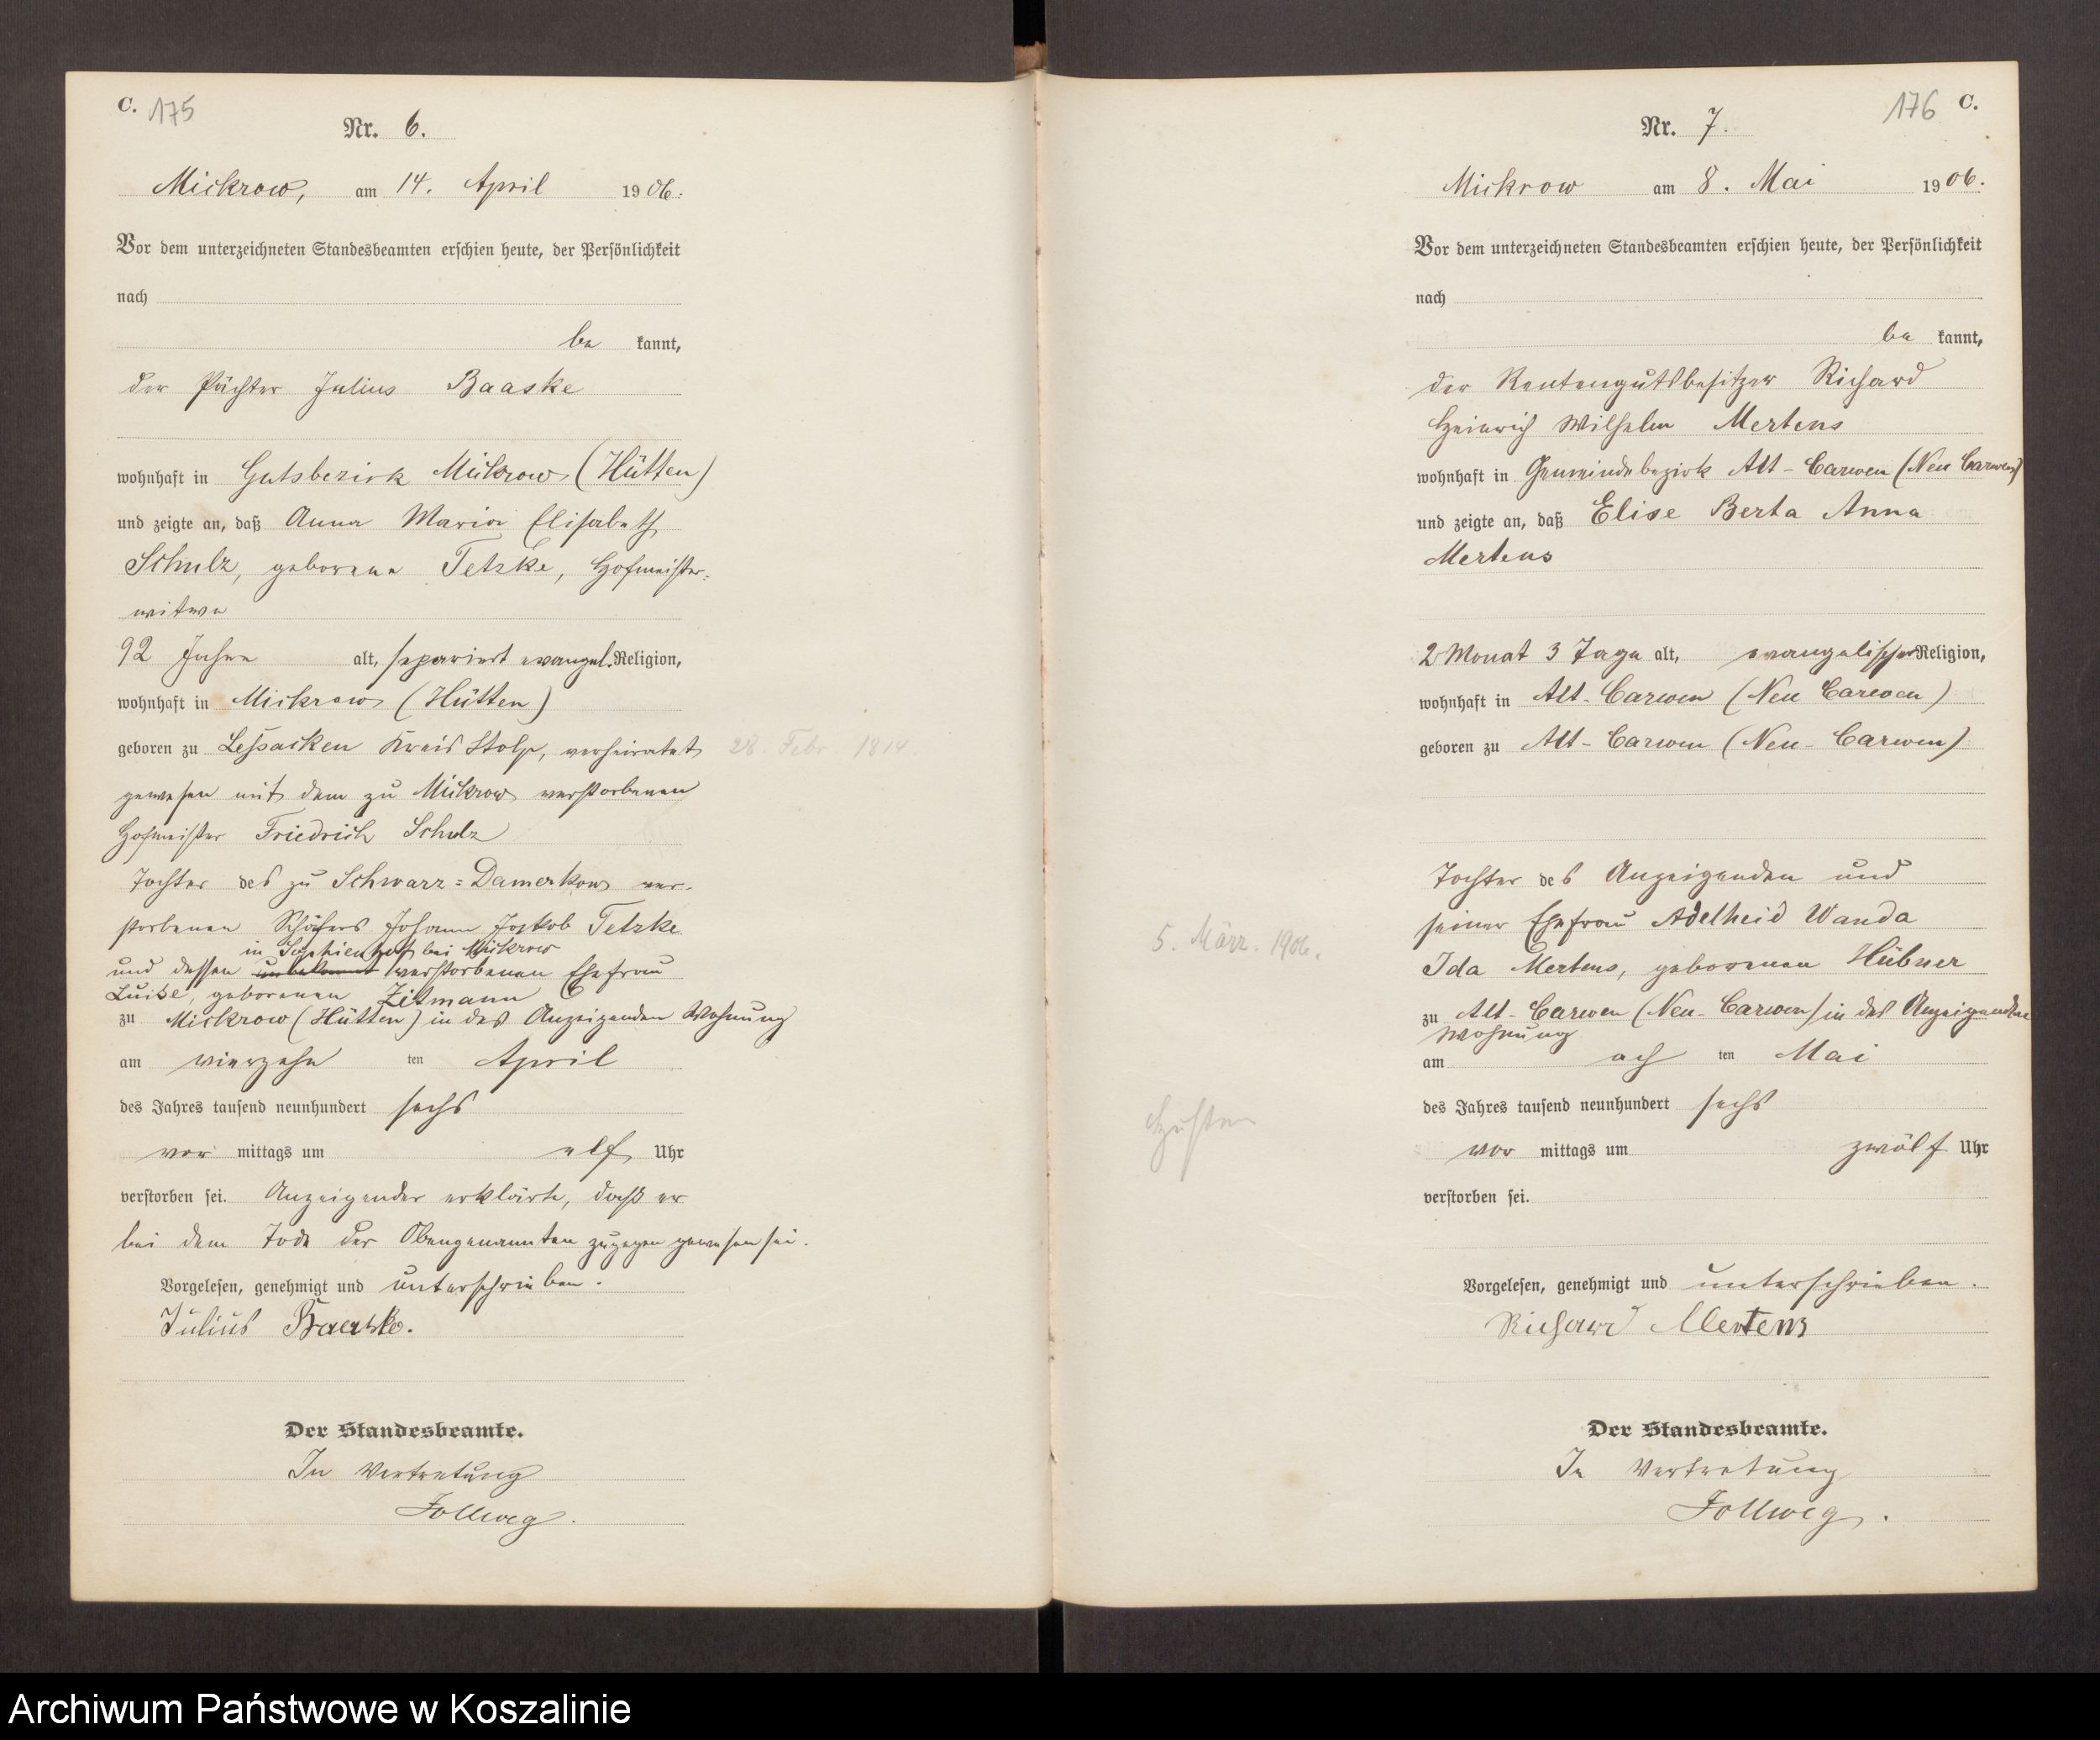 C. 175
Nr. 6.
Mickrow, am 14. April 1906.
Vor dem unterzeichneten Standesbeamten erschien heute, der Persönlichkeit
nach
be kannt,
der Pächter Julius Baaske
wohnhaft in Gutsbezirk Mickrow (Hütten)
und zeigte an, daß Anna Maria Elisabeth
Schulz, geborene Tetzke, Hofmeister-
witwe
92 Jahre alt, separiert evangel. Religion,
wohnhaft in Mickrow (Hütten)
geboren zu Lessacken Kreis Stolp, verheiratet 28. Febr. 1814.
gewesen mit dem zu Mickrow verstorbenen
Hofmeister Friedrich Schulz
Tochter des zu Schwarz=Damerkow ver-
storbenen Schäfers Johann Jakob Tetzke
in Sophienhof bei Mickrow
und dessen unbekannt verstorbenen Ehefrau
Luise, geborenen Zitmann
zu Mickrow (Hütten) in des Anzeigenden Wohnung
am vierzehn ten April
des Jahres tausend neunhundert sechs
vor mittags um elf Uhr
verstorben sei. Anzeigender erklärte, daß er
bei dem Tode der Obengenannten zugegen gewesen sei.
Vorgelesen, genehmigt und unterschrieben.
Julius Baaske.
Der Standesbeamte.
In Vertretung
Follweg.
176 C.
Nr. 7.
Mickrow am 8. Mai 1906.
Vor dem unterzeichneten Standesbeamten erschien heute, der Persönlichkeit
nach
be kannt,
der Rentengutsbesitzer Richard
Heinrich Wilhelm Mertens
wohnhaft in Gemeindebezirk Alt-Carwen (Neu Carwen)
und zeigte an, daß Elise Berta Anna
Mertens
2 Monat 3 Tage alt, evangelischer Religion,
wohnhaft in Alt-Carwen (Neu Carwen)
geboren zu Alt-Carwen (Neu-Carwen)
Tochter des Anzeigenden und
seiner Ehefrau Adelheid Wanda
5. März. 1906.
Ida Mertens, geborenen Hübner
zu Alt-Carwen (Neu-Carwen) in des Anzeigenden
Wohnung
am ach ten Mai
des Jahres tausend neunhundert sechs
Husten
vor mittags um zwölf Uhr
verstorben sei.
Vorgelesen, genehmigt und unterschrieben.
Richard Mertens
Der Standesbeamte.
In Vertretung
Follweg.
Archiwum Państwowe w Koszalinie